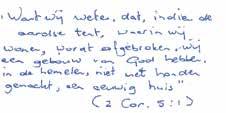 "Want wij weten, dat, indien de
aardse tent, waarin wij
wonen, wordt afgebroken, wij
een gebouw van God hebben,
in de hemelen, niet met handen
gemaakt, een eeuwig huis"
(2 Cor. 5:1)